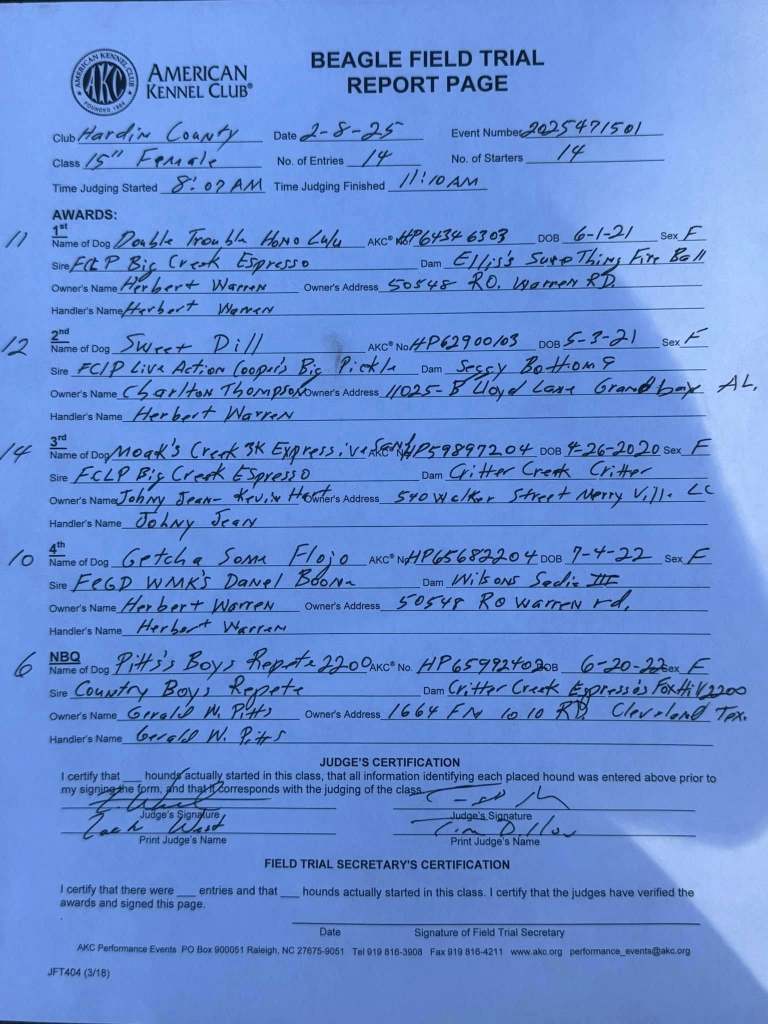 AMERICAN KENNEL CLUB
AKC
FOUNDED 1884
AMERICAN
KENNEL CLUB®
BEAGLE FIELD TRIAL
REPORT PAGE
Club Hardin County Date 2-8-25 Event Number 2025471501
Class 15" Female No. of Entries 14 No. of Starters 14
Time Judging Started 8:07 AM Time Judging Finished 11:10 AM
AWARDS:
1st
11 Name of Dog Double Trouble Hono Lulu AKC® No. HP64346303 DOB 6-1-21 Sex F
Sire FCLP Big Creek Espresso Dam Ellis's Sure Thing Fire Ball
Owner's Name Herbert Warren Owner's Address 50548 RO. Warren RD.
Handler's Name Herbert Warren
2nd
12 Name of Dog Sweet Dill AKC® No. HP62900103 DOB 5-3-21 Sex F
Sire FCLP Live Action Cooper's Big Pickle Dam Seggy Bottom 9
Owner's Name Charlton Thompson Owner's Address 11025-B Lloyd Lane Grand bay AL.
Handler's Name Herbert Warren
3rd
14 Name of Dog Moak's Creek 3K Express.ive AKC® No. HP59897204 DOB 4-26-2020 Sex F
Sire FCLP Big Creek Espresso Dam Critter Creek Critter
Owner's Name Johny Jean- Kevin Hart Owner's Address 540 Walker Street Merry Ville
Handler's Name Johny Jean
4th
10 Name of Dog Getcha Some Flojo AKC® No. HP65682204 DOB 7-4-22 Sex F
Sire FCGD WMK's Danel Boone Dam Wilsons Sadie III
Owner's Name Herbert Warren Owner's Address 50548 RO Warren rd,
Handler's Name Herbert Warren
NBQ
6 Name of Dog Pitts's Boys Repete 2200 AKC® No. HP65992402 DOB 6-20-22 Sex F
Sire Country Boys Repete Dam Critter Creek Express's FoxHiV2200
Owner's Name Gerald W. Pitts Owner's Address 1664 FM 1010 RD. Cleveland Tex.
Handler's Name Gerald W. Pitts
JUDGE'S CERTIFICATION
I certify that ___ hounds actually started in this class, that all information identifying each placed hound was entered above prior to
my signing the form, and that it corresponds with the judging of the class.
Judge's Signature Judge's Signature
Zach West Tim Dillon
Print Judge's Name Print Judge's Name
FIELD TRIAL SECRETARY'S CERTIFICATION
I certify that there were ___ entries and that ___ hounds actually started in this class. I certify that the judges have verified the
awards and signed this page.
Date Signature of Field Trial Secretary
AKC Performance Events PO Box 900051 Raleigh, NC 27675-9051 Tel 919 816-3908 Fax 919 816-4211 www.akc.org performance_events@akc.org
JFT404 (3/18)